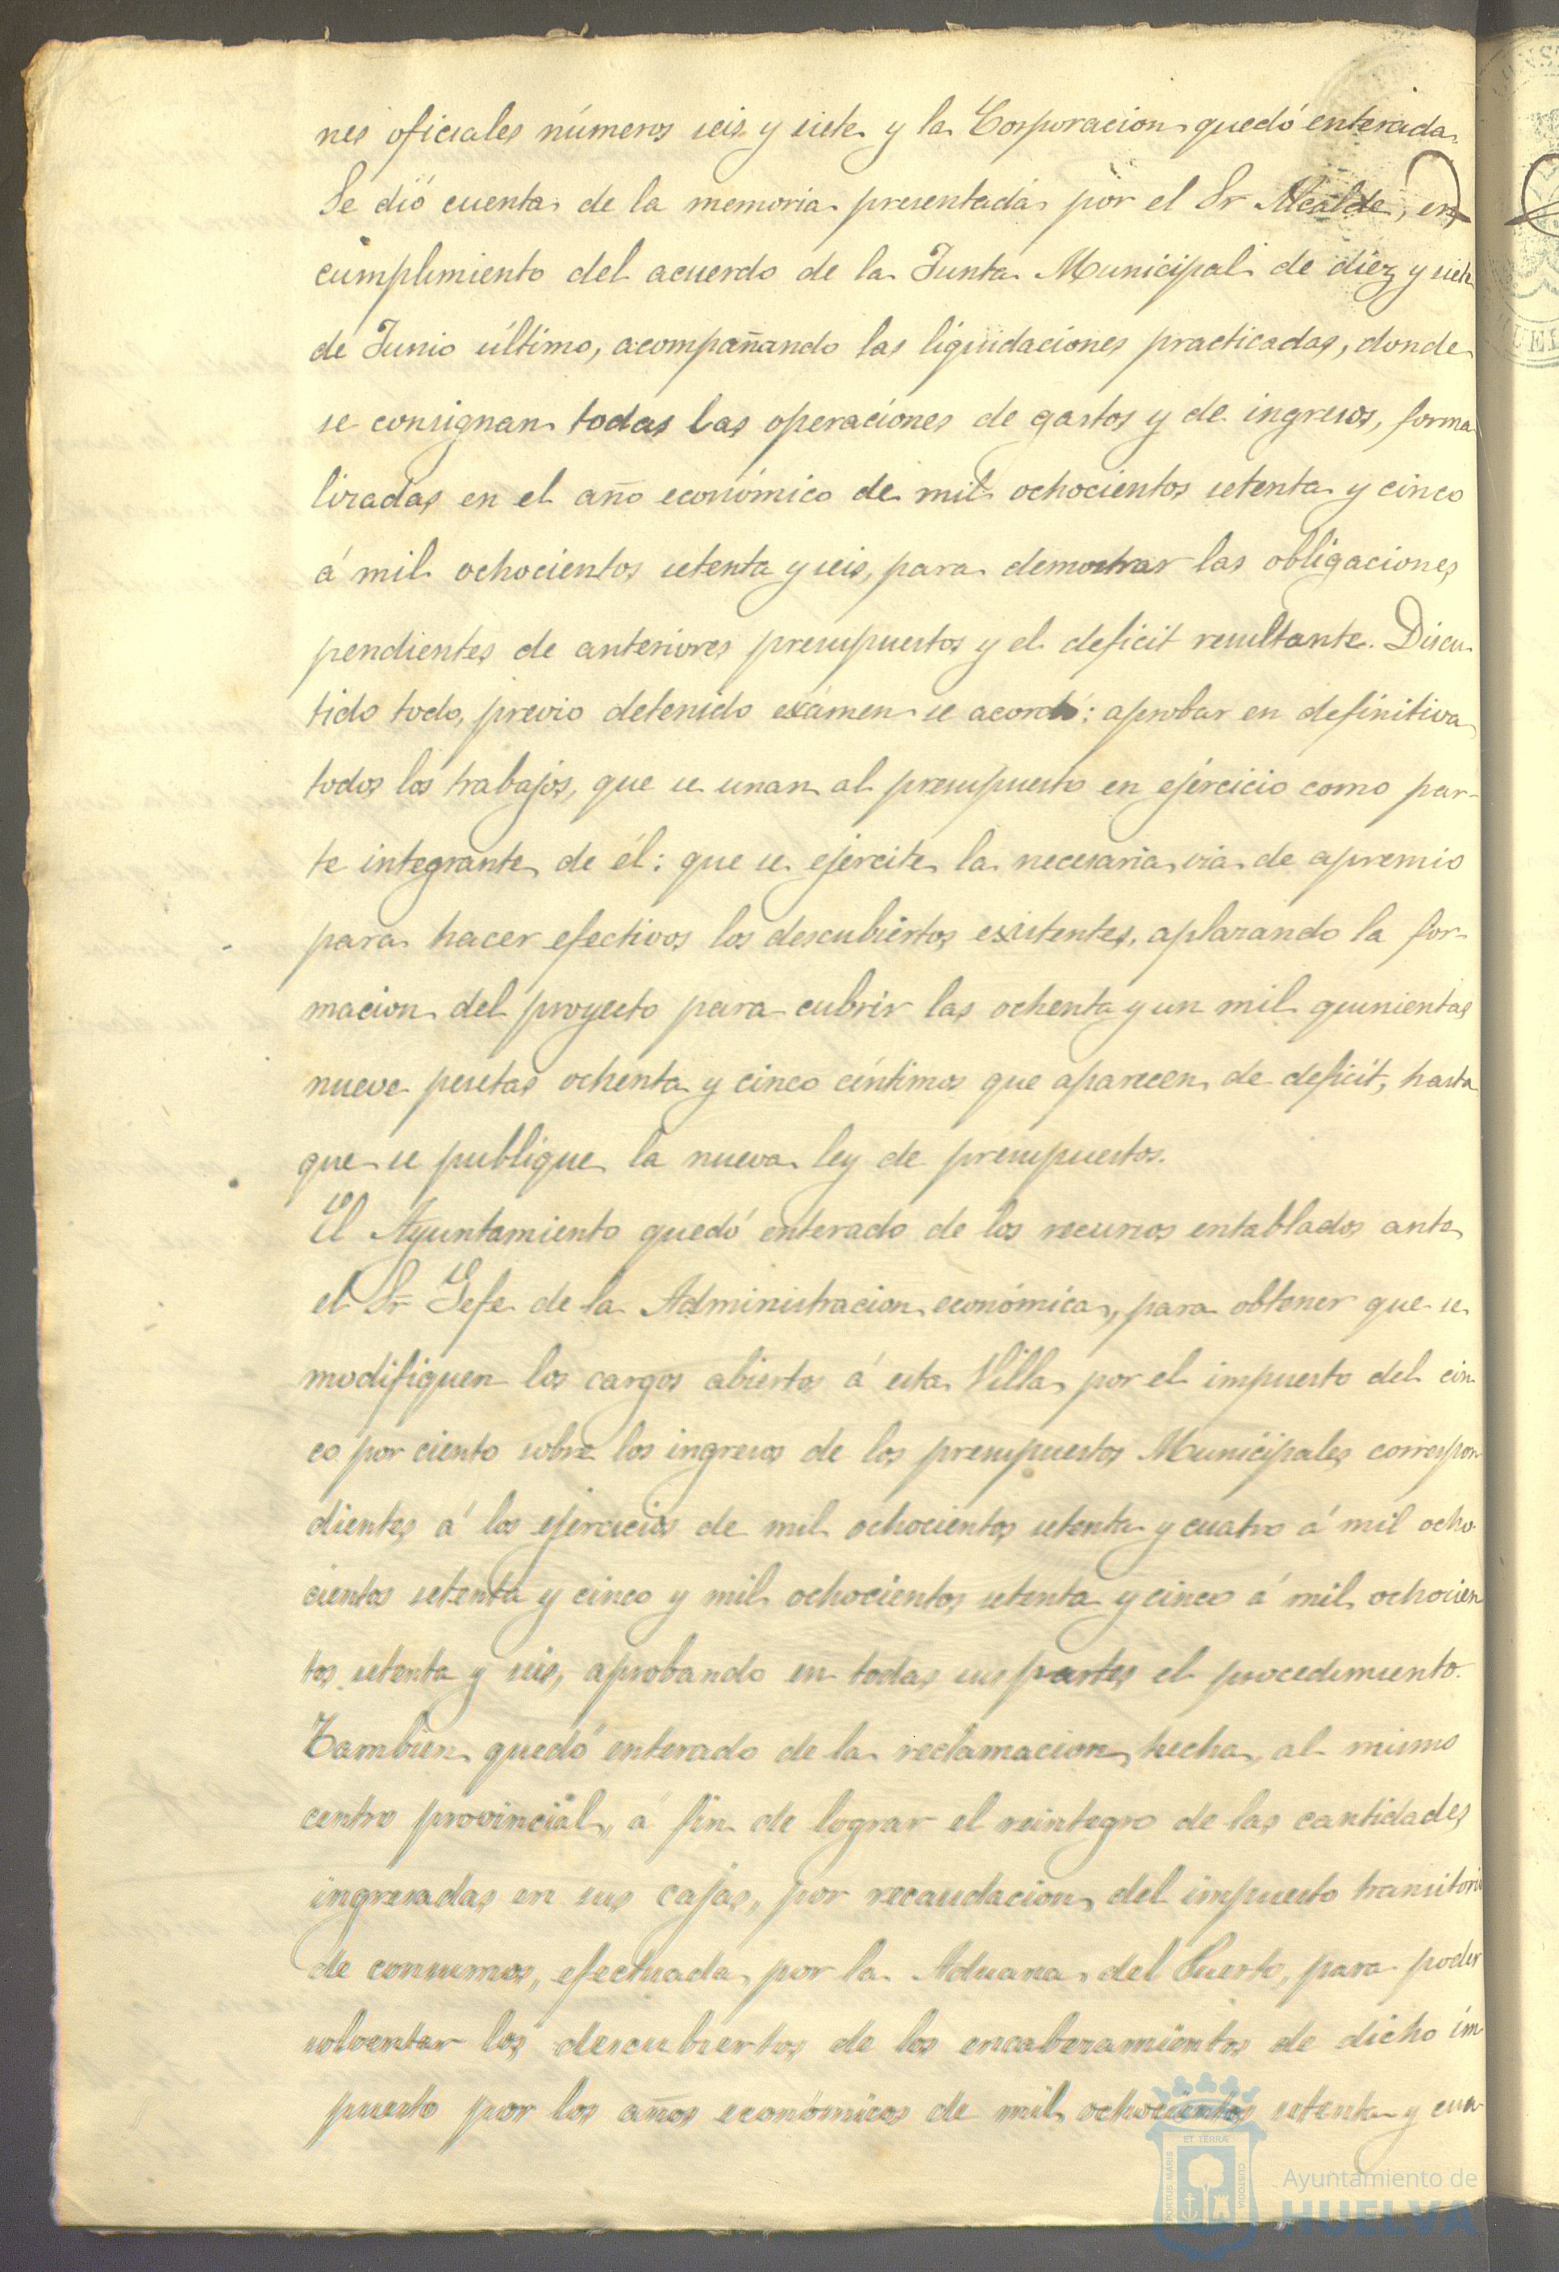 nes oficiales números seis y siete y la Corporacion quedó enterada.
Se dió cuenta de la memoria presentada por el Sr Alcalde, en
cumplimiento del acuerdo de la Junta Municipal de diez y siete
de Junio último, acompañando las liquidaciones practicadas, donde
se consignan todas las operaciones de gastos y de ingresos, forma
lizadas en el año económico de mil ochocientos setenta y cinco
á mil ochocientos setenta y seis, para demostrar las obligaciones
pendientes de anteriores presupuestos y el deficit resultante. Discu-
tido todo, previo detenido exámen se acordó: aprobar en definitiva
todos los trabajos, que se unan al presupuesto en ejercicio como par-
te integrante de él: que se ejercite la necesaria via de apremio
para hacer efectivos los descubiertos existentes, aplazando la for-
macion del proyecto para cubrir las ochenta y un mil quinientas
nueve pesetas ochenta y cinco céntimos que aparecen de deficit, hasta
que se publique la nueva ley de presupuestos.
El Ayuntamiento quedó enterado de los recursos entablados ante
el Sr Gefe de la Administracion económica, para obtener que se
modifiquen los cargos abiertos á esta Villa por el impuesto del cin
co por ciento sobre los ingresos de los presupuestos Municipales correspon
dientes á los ejercicios de mil ochocientos setenta y cuatro á mil ocho-
cientos setenta y cinco y mil ochocientos setenta y cinco á mil ochocien
tos setenta y seis, aprobando en todas sus partes el procedimiento.
Tambien quedó enterado de la reclamacion hecha, al mismo
centro provincial, á fin de lograr el reintegro de las cantidades
ingresadas en sus cajas, por recaudacion del impuesto transitorio
de consumos, efectuada por la Aduana del Puerto, para poder
solventar los descubiertos de los encabezamientos de dicho im
puesto por los años económicos de mil ochocientos setenta y cua-
ET TERRÆ
PORTUS MARIS
CUSTODIA
Ayuntamiento de
HUELVA